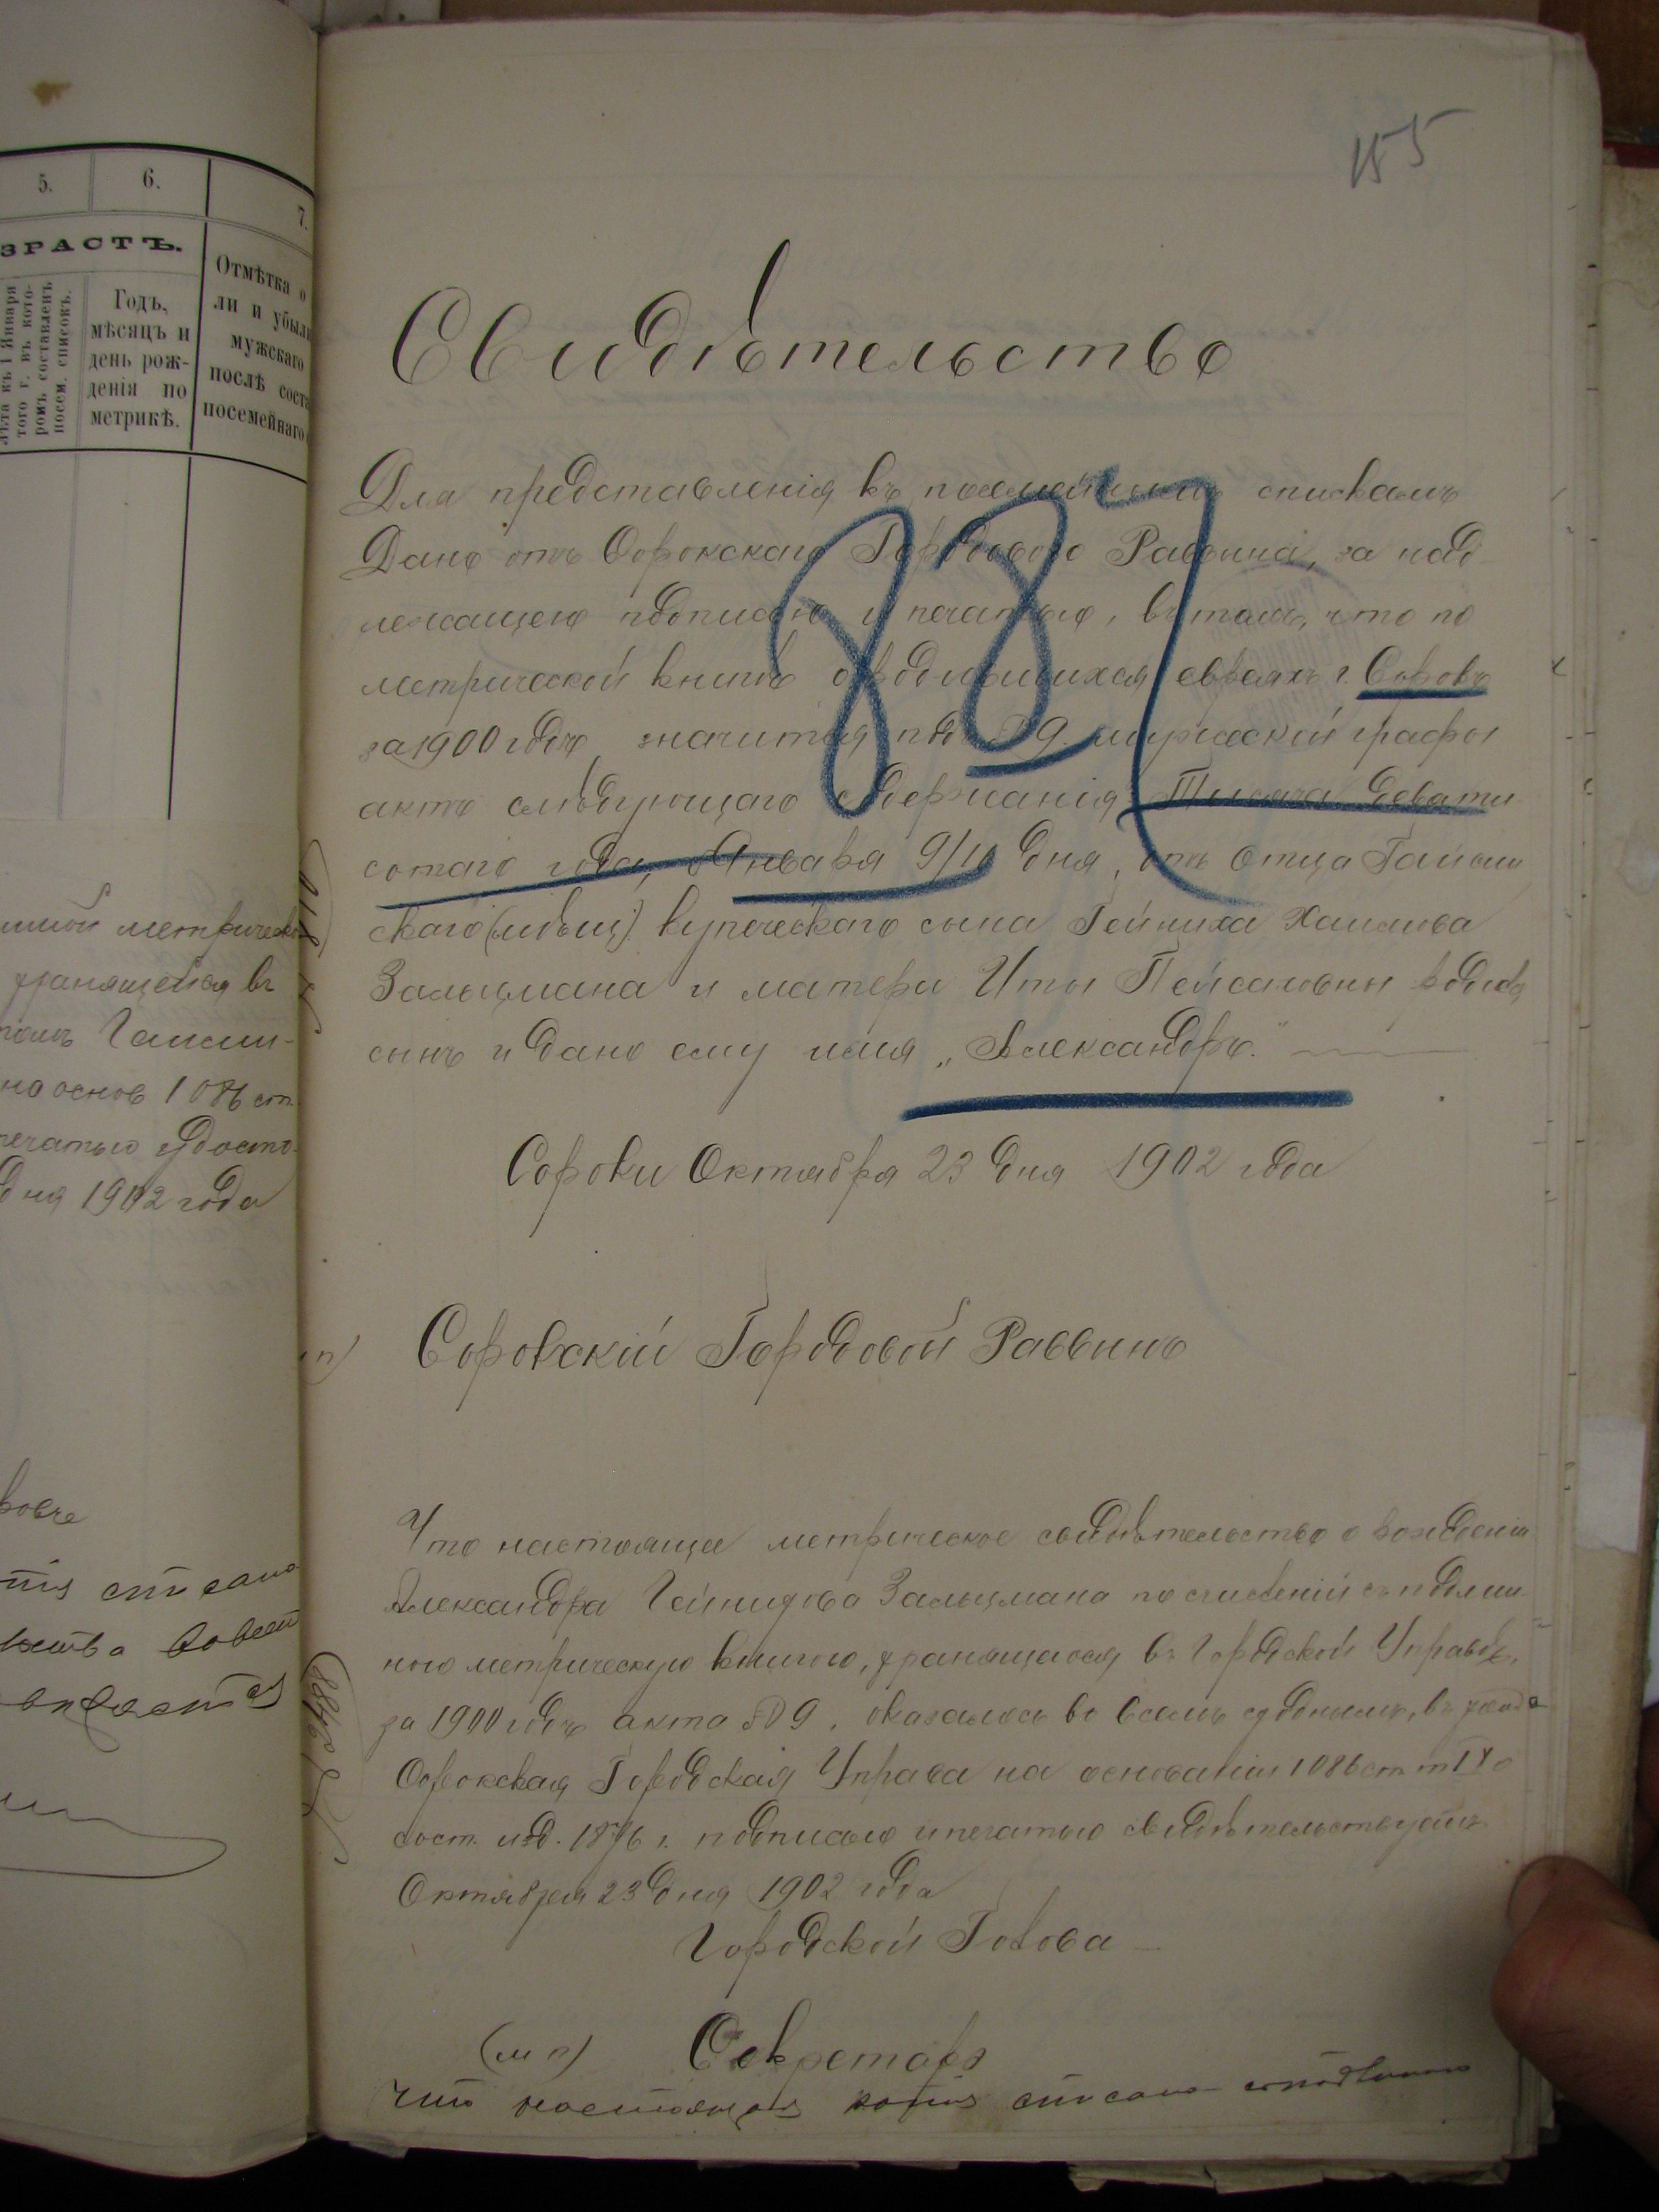 155
5.
6.
7.
ЗРАСТЪ.
Лѣта къ 1 Января
того г. въ кото-
ромъ составленъ
посем. списокъ.
Годъ,
мѣсяцъ и
день рож-
денія по
метрикѣ.
Отмѣтка о
ли и убыли
мужскаго
послѣ соста
посемейнаго
метрическ
хранящейся въ
Гайсин-
на основ 1086 ст.
печатью удосто-
дня 1902 года
списана
Свидѣтельство
Для представленія къ посемейнымъ спискамъ
Дано отъ Сорокскаго Городового Раввина, за над
лежащею подписью и печатью, въ томъ, что по
метрической книгѣ о родившихся евреяхъ г. Сорокъ
за 1900 годъ значится под № 9 мужеской графы
актъ слѣдующаго содержанія: Тысяча девяти
сотаго года, Января 9/10 дня, отъ отца Гайсин
скаго (мѣщ) купеческаго сына Гейниха Хаимова
Зальцмана и матери Иты Пейсаховны родился
сынъ и дано ему имя „Александръ."
887
Сороки Октября 23 дня 1902 года
Сорокскій Городовой Раввинъ
Что настоящее метрическое свидѣтельство о рожденіи
Александра Гейнихова Зальцмана по сличеніи съ подлин
ною метрическую книгою, хранящаюся въ Городской Управѣ,
за 1900 годъ акта № 9, оказалось во всемъ сходнымъ, въ
Сорокская Городская Управа на основаніи 1086 ст. т IX о
сост. изд. 1876 г. подписью и печатью свидѣтельствуетъ
Октября 23 дня 1902 года
Городской Голова
(м п) Секретарь
Что настоящая копія списана